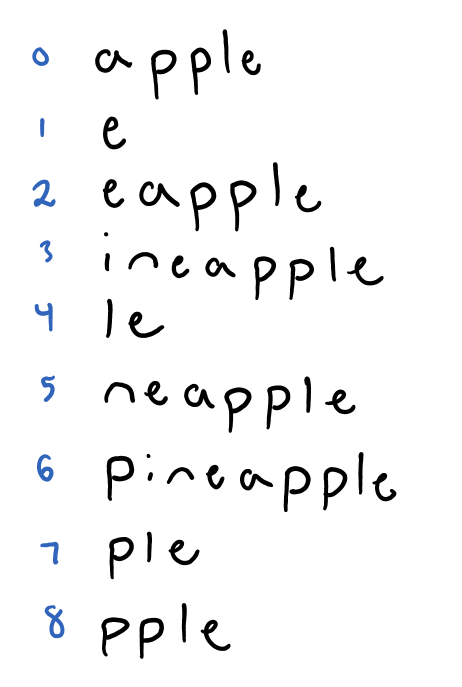 0 apple
1 e
2 eapple
3 ineapple
4 le
5 neapple
6 pineapple
7 ple
8 pple